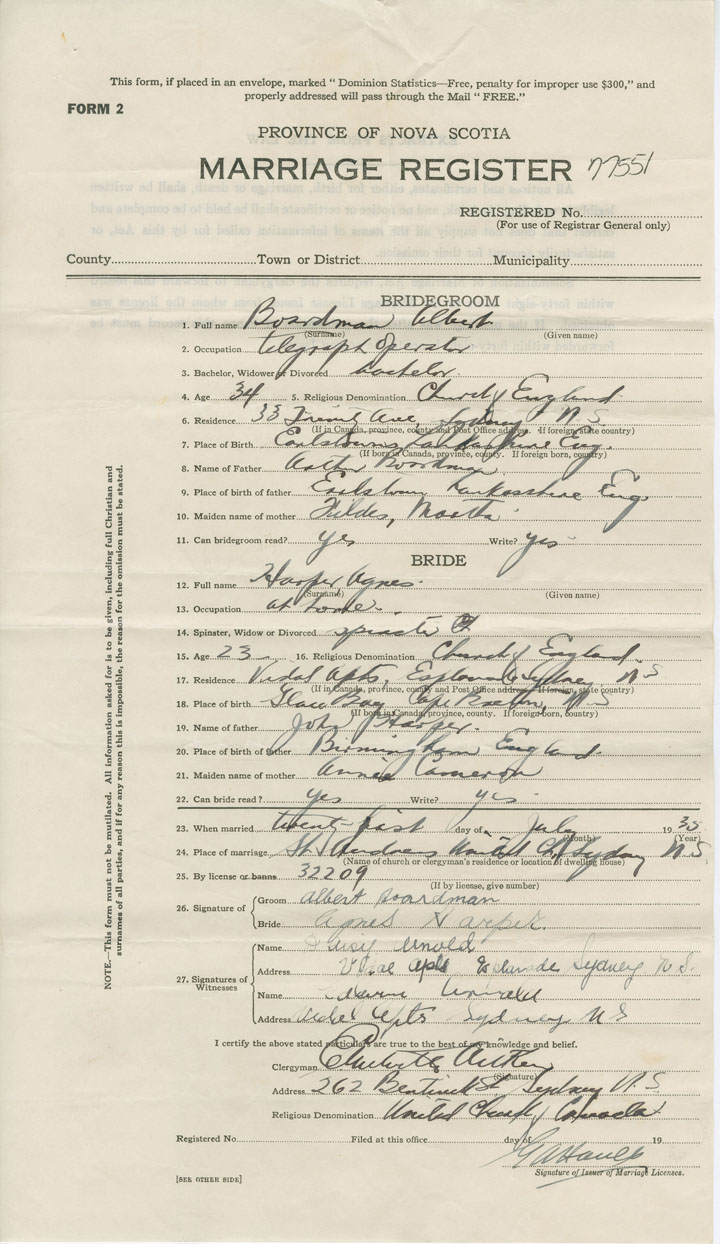 This form, if placed in an envelope, marked " Dominion Statistics—Free, penalty for improper use $300," and
properly addressed will pass through the Mail " FREE."
FORM 2
PROVINCE OF NOVA SCOTIA
MARRIAGE REGISTER 77551
REGISTERED No.
(For use of Registrar General only)
County Town or District Municipality
BRIDEGROOM
1. Full name Boardman Albert
(Surname) (Given name)
2. Occupation telegraph Operator
3. Bachelor, Widower or Divorced bachelor
4. Age 34 5. Religious Denomination Church of England
6. Residence 33 Ave, Sydney N S
(If in Canada, province, county and Post Office address. If foreign, state country)
7. Place of Birth Eng.
(If born in Canada, province, county. If foreign born, country)
8. Name of Father Boardman
9. Place of birth of father Eng
10. Maiden name of mother Fildes, Martha
11. Can bridegroom read? yes Write? yes
BRIDE
12. Full name Harper Agnes
(Surname) (Given name)
13. Occupation at home
14. Spinster, Widow or Divorced
15. Age 23 16. Religious Denomination Church of England
17. Residence Vidal Apts, Esplanade Sydney N S
(If in Canada, province, county and Post Office address. If foreign, state country)
18. Place of birth Glace Bay Cape Breton, N S
(If born in Canada, province, county. If foreign born, country)
19. Name of father John Harper
20. Place of birth of father Birmingham England
21. Maiden name of mother Annie Cameron
22. Can bride read? yes Write? yes
23. When married twenty-first day of July 19 35
(Month) (Year)
24. Place of marriage St Andrews United Ch, Sydney N.S.
(Name of church or clergyman's residence or location of dwelling house)
25. By license or banns 32209
(If by license, give number)
26. Signature of
Groom albert boardman
Bride Agnes Harper.
27. Signatures of Witnesses
Name Arnold
Address Vidal Apts Esplanade Sydney N.S.
Name Arnold
Address Vidal Apts Sydney N S
I certify the above stated particulars are true to the best of my knowledge and belief.
Clergyman
(Signature)
Address 262 Bentinck St Sydney N.S
Religious Denomination United Church of Canada
Registered No. Filed at this office day of 19
Signature of Issuer of Marriage Licenses.
[SEE OTHER SIDE]
NOTE.—This form must not be mutilated. All information asked for is to be given, including full Christian and
surnames of all parties, and if for any reason this is impossible, the reason for the omission must be stated.